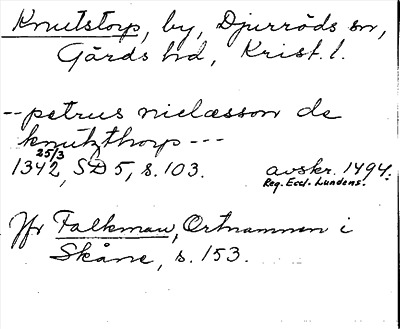 Knutstorp, by, Djurröds sn,
Gärds hd, Krist. l.
-- petrus nielæsson de
knutzthorp ---
1342 25/3, SD 5, s. 103. avskr. 1494.
Reg. Eccl. Lundens.
Jfr Falkman, Ortnamnen i
Skåne, s. 153.